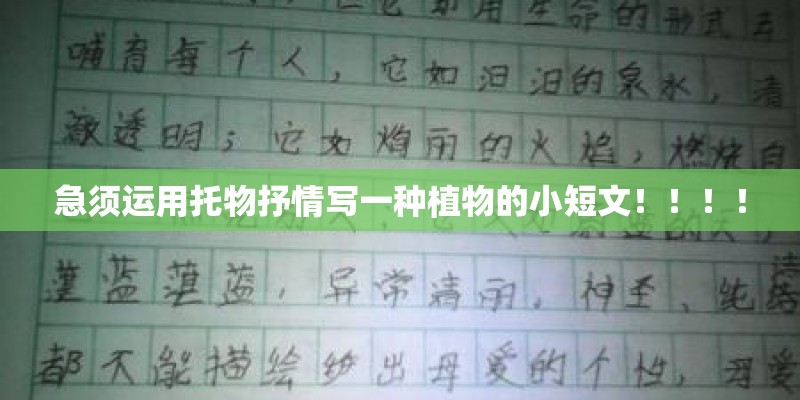 用生命的形式去
哺育每个人，它如汩汩的泉水，清
澈透明；它如焰丽的火焰，燃烧自
急须运用托物抒情写一种植物的小短文！！！！
蓝蓝，异常清丽。神圣、纯洁
都不能描绘出母爱的个性，母爱